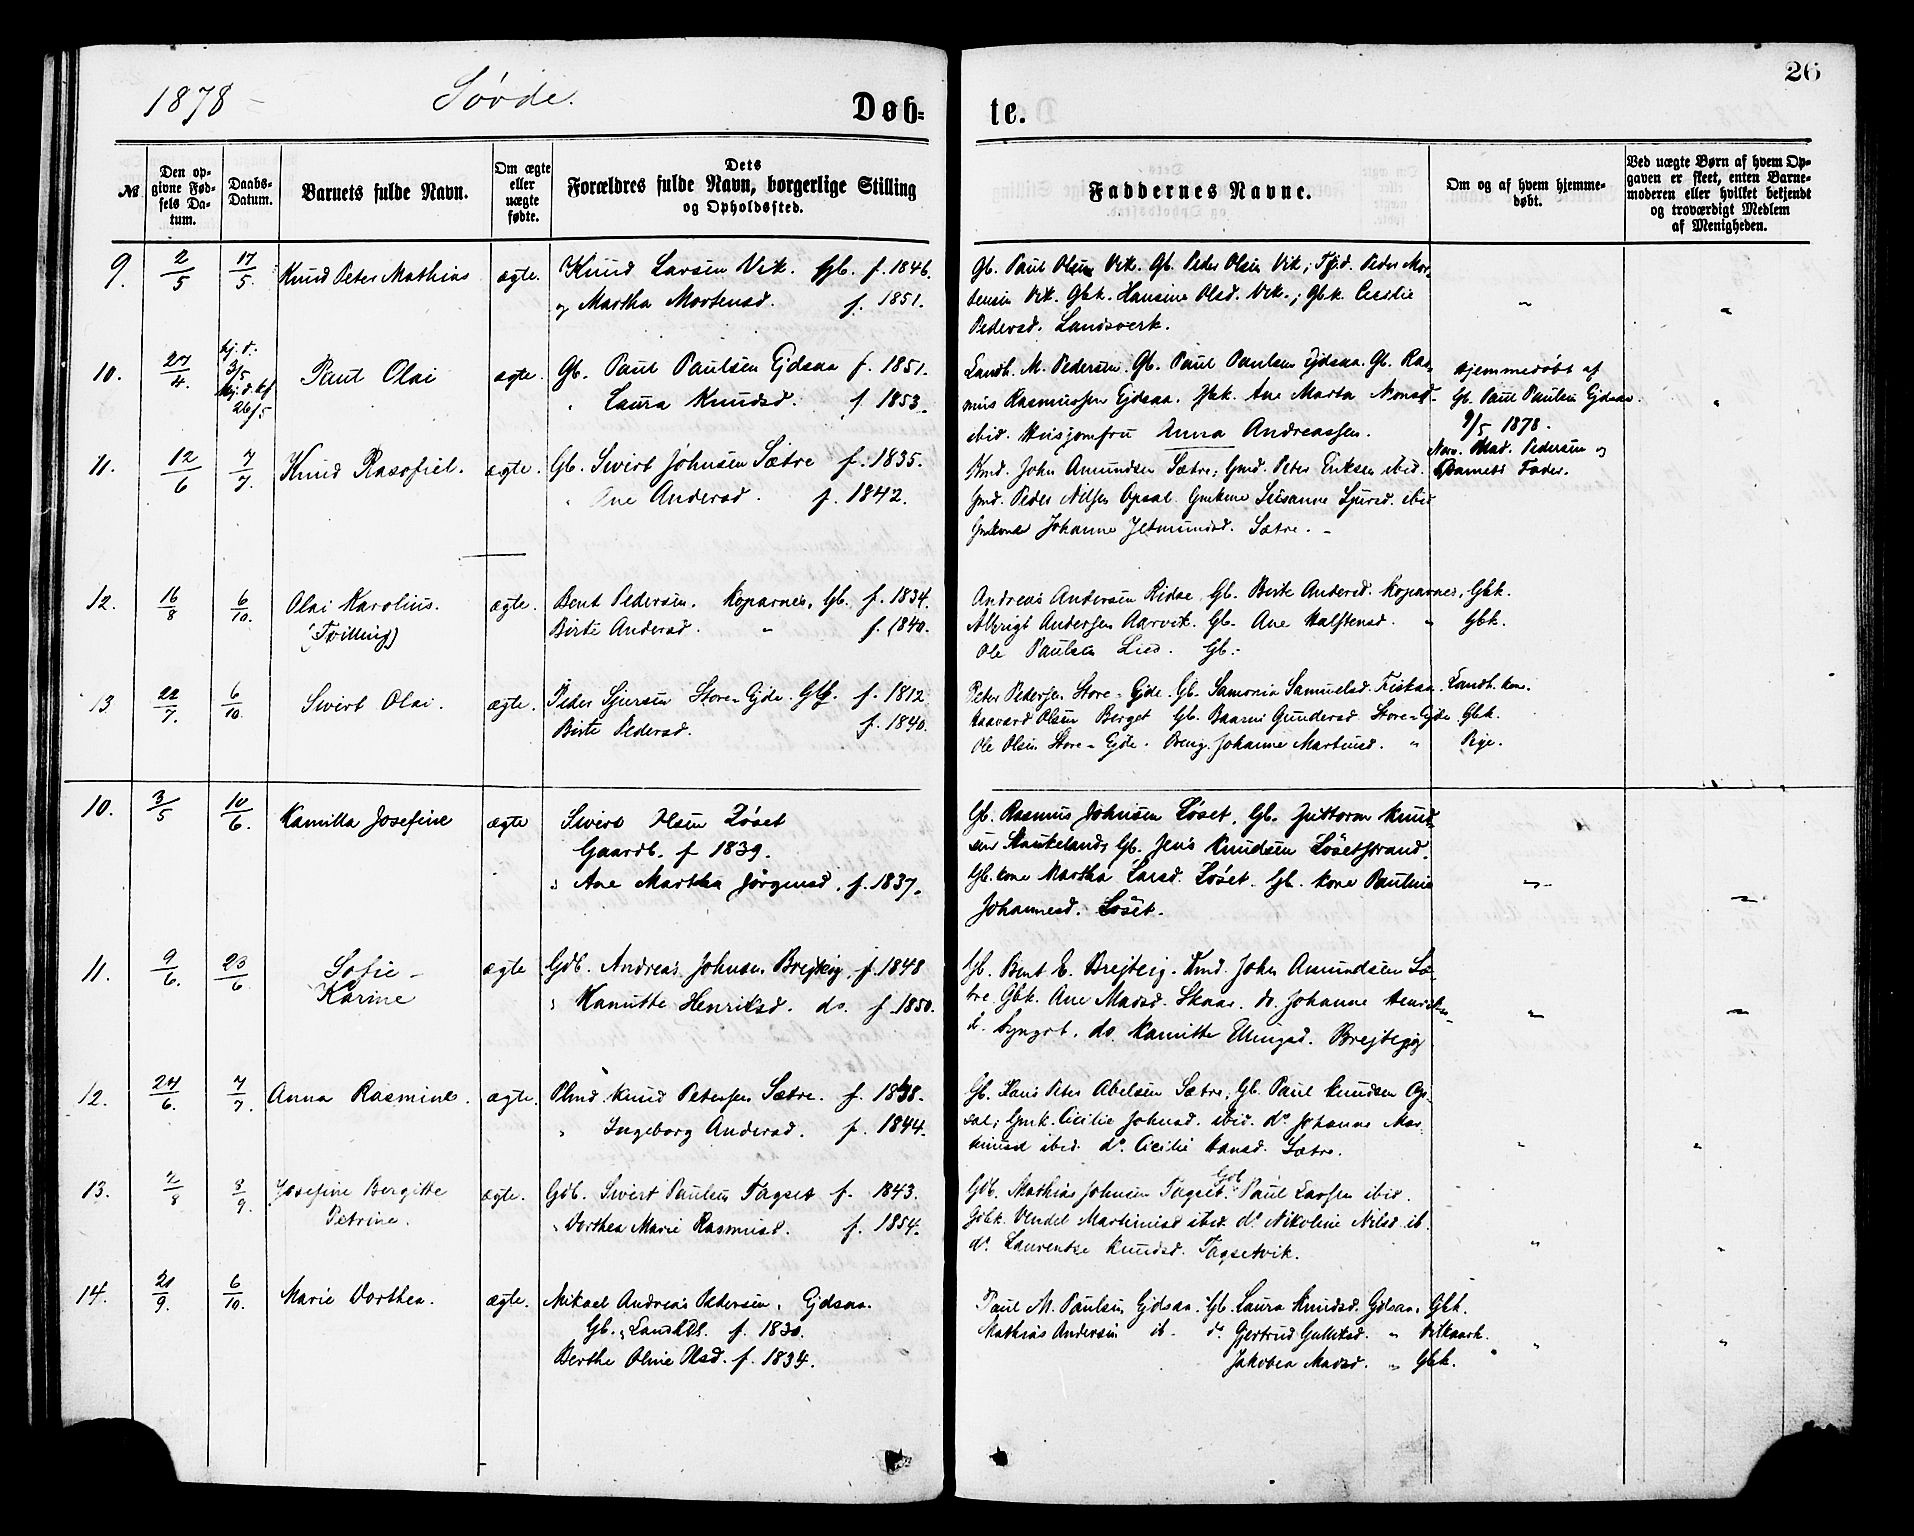 1878 - Søvde.
Døb=
te.
26
№
Den op-
givne Fød-
sels Da-
tum.
Daabs-
Datum.
Barnets fulde Navn.
Om ægte
eller
uægte
fødte.
Dets
Forældres fulde Navn, borgerlige Stilling
og Opholdssted.
Faddernes Navne.
Om og af hvem hjemme-
døbt.
Ved uægte Børn af hvem Op-
gaven er skeet, enten Barne-
moderen eller hvilket bekjendt
og troværdigt Medlem
af Menigheden.
9. 2/5 17/5. Knud Peter Mathias ægte. Knud Larsen Vik. Gb. f. 1846.
og Martha Mortensd. f. 1851.
Gb. Paul Olsen Vik. Gb. Peder Olsen Vik; Peder Mor-
tensen Vik. Gbk. Hansine Olsd. Vik.; Gbk. Cecilie
Pedersd. Landsverk.
10. 27/4. hj. d. 3/5 26/5 Paul Olai ægte. Gb. Paul Paulsen Ejdsaa f. 1851.
" Laura Knudsd. f. 1853.
Landh. M. Pedersen. Gb. Paul Paulsen Ejdsaa. Gb. Ras-
mus Rasmussen Ejdsaa. Gbk. Ane Marta Monsd.
ibid. Husjomfru Anna Andreassen.
Hjemmedøbt af
Gb. Paul Paulsen Ejdsaa.
9/5 1878.
Pedersen og
Barnets Fader.
11. 12/6 7/7 Knud Rasofiel. ægte. Gb. Sivert Johnsen Sætre f. 1835.
" Ane Andersd. f. 1842.
Kmd. John Amundsen Sætre; Gmd. Peter Eriksen ibid.
Gmd. Peder Nilsen Opsal. Gmkone Susanne Sjursd. ibid
Gmkone Johanne Jetmundsd. Sætre. -
12. 16/8 6/10. Olai Karolius. ægte. Bent Pedersen. Koparnes. Gb. f. 1834.
(Tvilling) Birte Andersd. " f. 1840.
Andreas Andersen Gb. Berte Andersd. Koparnes, Gbk.
Albrigt Andersen Aarvik. Gb. Ane Halstensd. " Gbk.
Ole Paulsen Gb.
13. 22/7. 6/10. Sivert Olai. ægte. Peder Sjursen Store-Ejde. f. 1812
Birte Pedersd. f. 1840.
Peter Pedersen Store-Ejde. Gb. Samonia Samuelsd. Landh. kone.
Haavard Olsen Berget Gb. Gundersd. Store-Ejde Gbk.
Ole Olsen Store-Ejde. Johanne Martinsd. " Pige.
10. 3/5 10/6. Kamilla Josefine ægte Sivert Olsen Løset
Gaardb. f 1839.
" Ane Martha Jørgensd. f. 1837.
Gb. Rasmus Johnsen Løset. Gb. Guttorm Knud-
sen Gb. Jens Knudsen Løsetstrand.
Gb. kone Martha Larsd. Løset. Gb. kone Pauline
Johannesd. Løset.
11. 9/6. 23/6 Sofie - ægte Gdb. Andreas Johnsen Brejteig, f. 1848
Karine " Kanutte Henriksd. do. f. 1850.
Gb. Bent E. Brejteig. Kmd. John Amundsen Sæ-
tre. Gbk. Ane Madsd. Skaar. do. Johanne Henriks-
d. do. Kanutte Ellingsd. Brejteig
12. 24/6. 7/7. Anna Rasmine. ægte. Plmd. Knud Petersen Sætre. f. 1838.
" Ingeborg Andersd. f. 1844.
Gb. Hans Peter Abelsen Sætre; Gb. Paul Knudsen Op-
sal; Gmk. Cicilie Johnsd. ibid. do. Johanne Ras-
musd ibid. do. Cicilie Hansd. Sætre.
13. 2/8 8/9. Josefine Bergitte ægte. Gdb. Sivert Paulsen Tagset f. 1843.
Petrine. " Dorthea Marie Rasmusd. f. 1854.
Gdb. Mathias Johnsen Tagset. Gdb Paul Larsen ibid.
Gdbk. Vendel Martinusd ibid. do. Nikoline Nilsd. ib.
do. Laurentse Knudsd. Tagsetvik.
14. 21/9. 6/10. Marie Dorthea. ægte. Mikael Andreas Pedersen, Ejdsaa.
Gb. f. 1830.
Berthe Oline Olsd. f. 1834.
Paul M. Paulsen Ejdsaa. Gb. Laura Knudsd. Ejdsaa, Gbk.
Mathias Andersen ib. do. Gjertrud "
Jakobea Madsd. " Gbk.